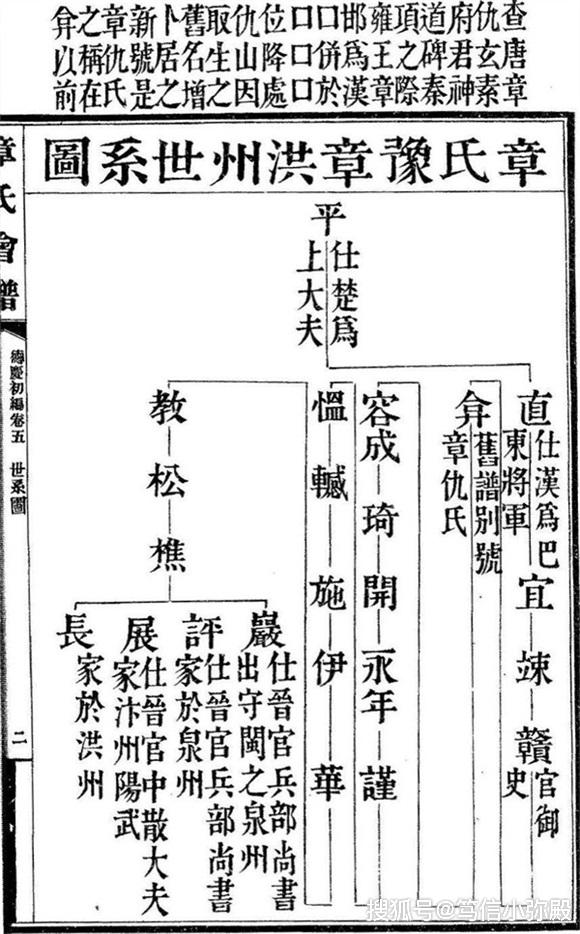 查唐章
仇玄素
府君神
道碑秦
項之際
雍王章
邯爲漢
口併於
口口口
位降處
仇山因
取生之
舊名增
卜居之
新號是
章仇氏
之稱在
弇以前
章氏豫章洪州世系圖
平
仕楚爲
上大夫
直
仕漢爲巴
東將軍
宜
竦
贛
官御
史
弇
舊譜別號
章仇氏
容成
琦
開
永年
謹
慍
轗
施
伊
華
教
松
樵
巖
仕晉官兵部尚書
出守閩之泉州
評
仕晉官兵部尚書
家於泉州
展
仕晉官中散大夫
家汴州陽武
長
家於洪州
章氏會譜
德慶初編卷五 世系圖
二
搜狐号@笃信小弥殿